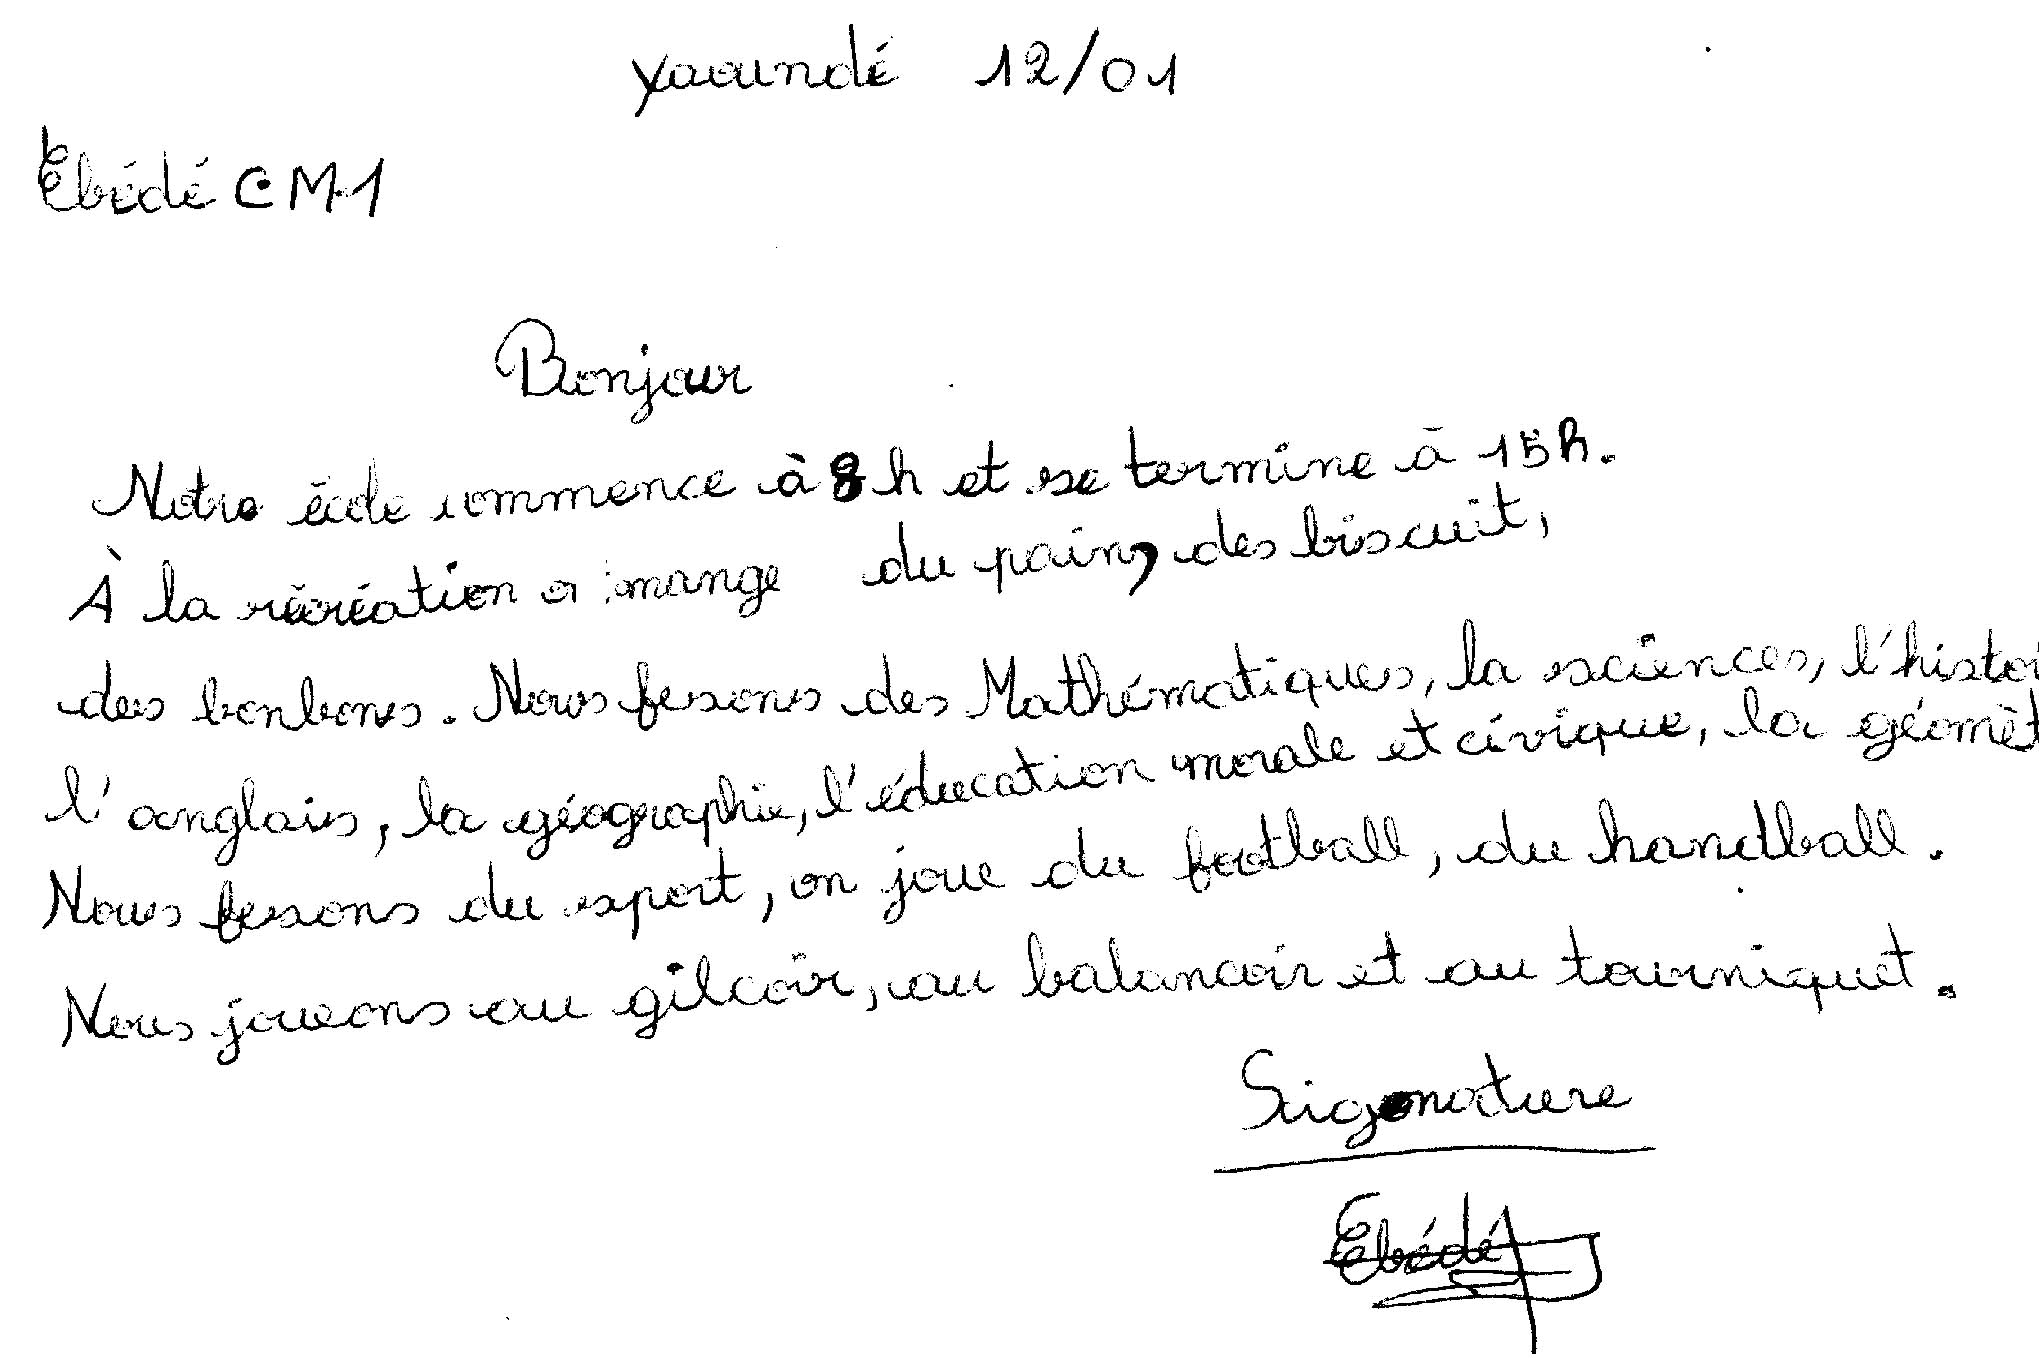 Yaoundé 12/01
Ebédé CM1
Bonjour
Notre école commence à 8h et se termine à 15h.
À la récréation on mange du pain, des biscuit,
des bonbons. Nous fesons des Mathématiques, la sciences, l'histoi
l'anglais, la géographie, l'éducation morale et civique, la géomèt
Nous fesons du sport, on joue du football, du handball.
Nous joueons au gilcoir, au balancoir et au tourniquet.
Signature
Ebédé